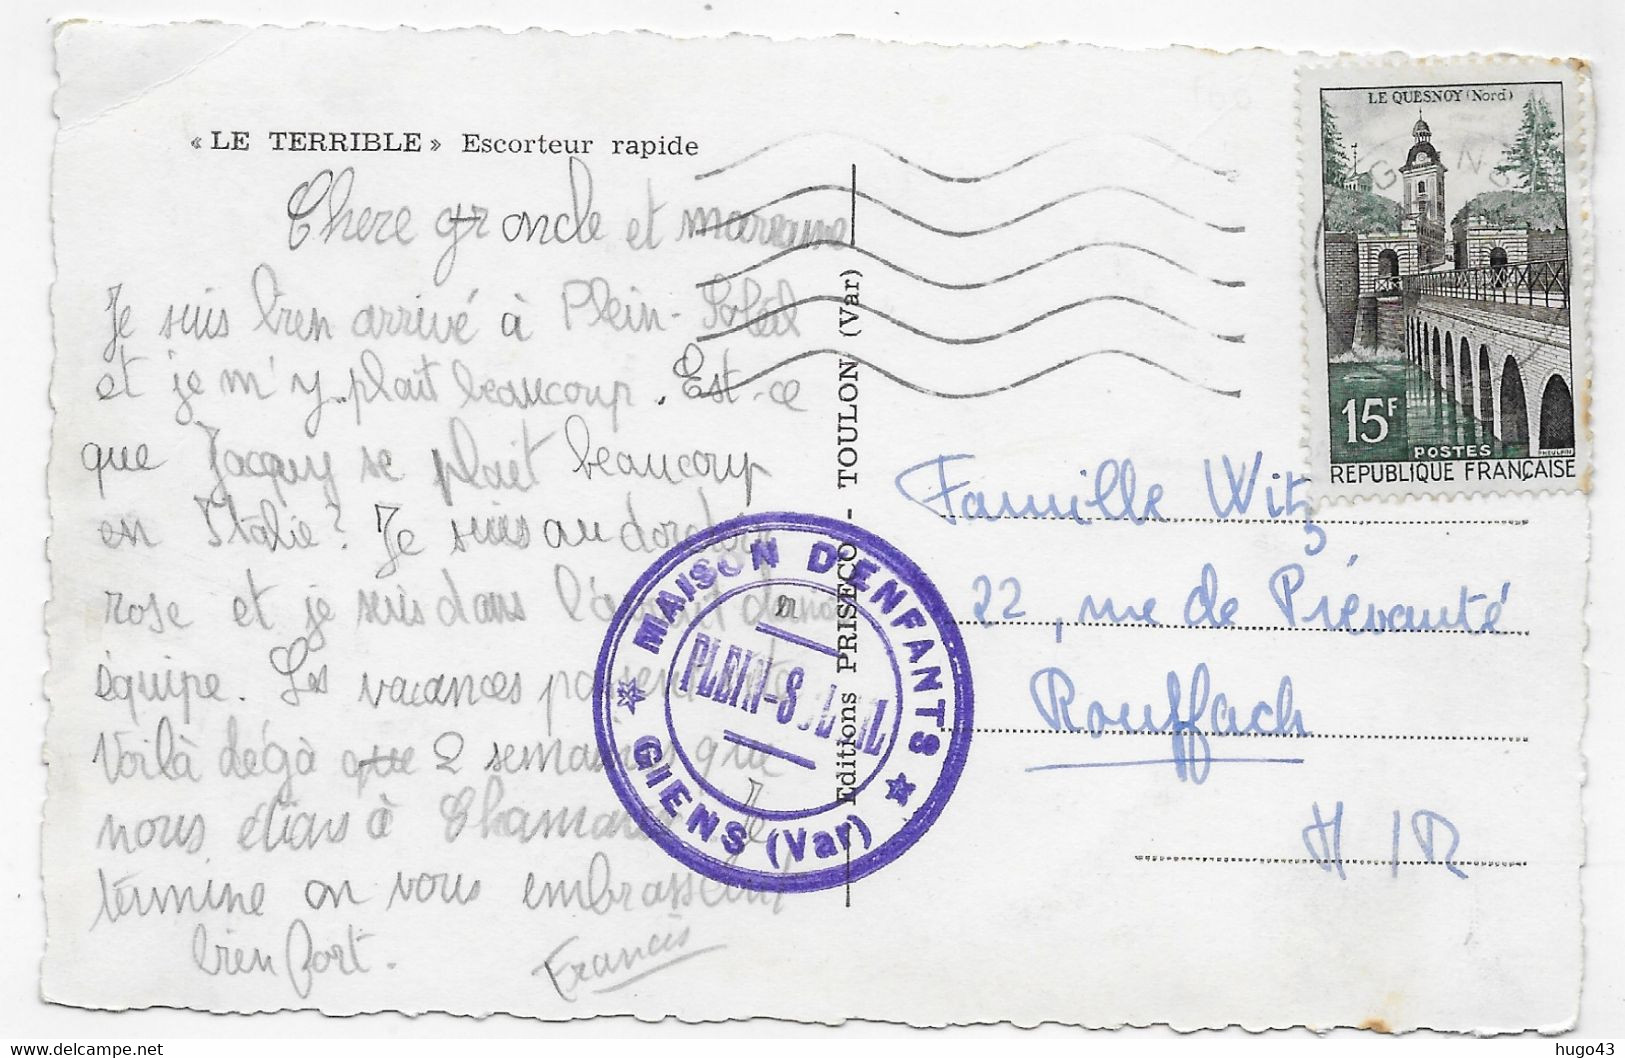 « LE TERRIBLE » Escorteur rapide
Chere gr oncle et marraine
Je suis bien arrivé à Plein-Soleil
et je m'y plait beaucoup. Est-ce
que Jacquy se plait beaucoup
en Italie? Je suis au dortoir
rose et je suis dans l'
équipe. Les vacances
Voilà dégà que 2 semaines que
nous étions à Je
termine en vous embrassant
bien fort.
Francis
Editions PRISECO - TOULON (Var)
MAISON D'ENFANTS
PLEIN-SOLEIL
GIENS (Var)
LE QUESNOY (Nord)
15F
POSTES
REPUBLIQUE FRANÇAISE
Famille Witz
22, rue de Prévauté
Rouffach
H/R
hugo43